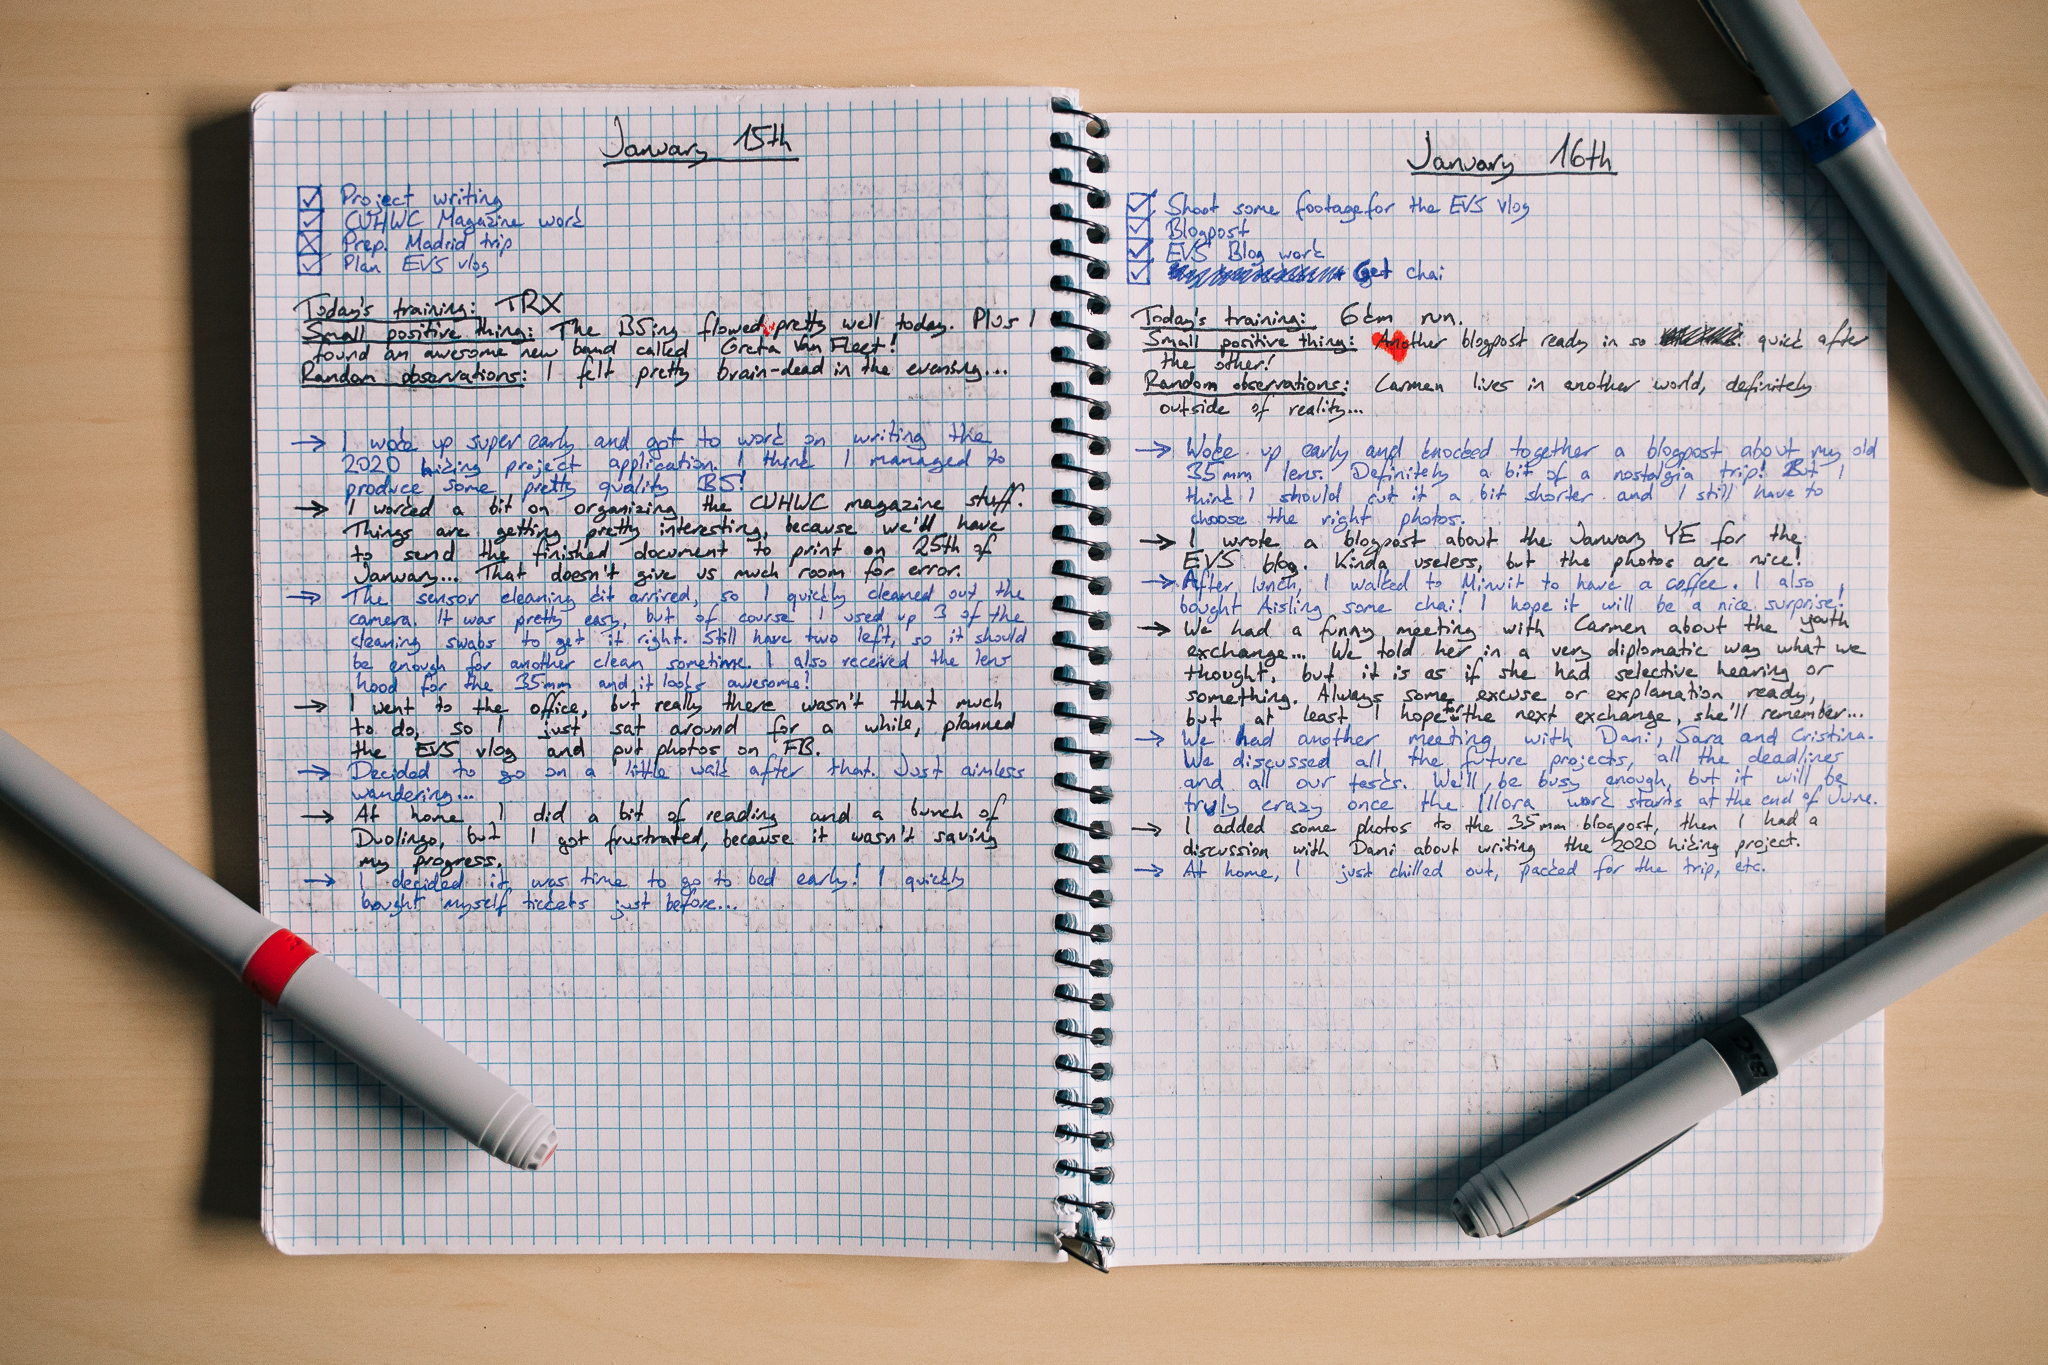 January 15th
Project writing
CUHWC Magazine work
Prep. Madrid trip
Plan EVS vlog
Today's training: TRX
Small positive thing: The BSing flowed pretty well today. Plus I
found an awesome new band called Greta Van Fleet!
Random observations: I felt pretty brain-dead in the evening...
→ I woke up super early and got to work on writing the
2020 hiking project application. I think I managed to
produce some pretty quality BS!
→ I worked a bit on organizing the CUHWC magazine stuff.
Things are getting pretty interesting, because we'll have
to send the finished document to print on 25th of
January... That doesn't give us much room for error.
→ The sensor cleaning kit arrived, so I quickly cleaned out the
camera. It was pretty easy, but of course I used up 3 of the
cleaning swabs to get it right. Still have two left, so it should
be enough for another clean sometime. I also received the lens
hood for the 35mm and it looks awesome!
→ I went to the office, but really there wasn't that much
to do, so I just sat around for a while, planned
the EVS vlog and put photos on FB.
→ Decided to go on a little walk after that. Just aimless
wandering...
→ At home I did a bit of reading and a bunch of
Duolingo, but I got frustrated, because it wasn't saving
my progress.
→ I decided it was time to go to bed early! I quickly
bought myself tickets just before...
January 16th
Shoot some footage for the EVS vlog
Blogpost
EVS Blog work
Get chai
Today's training: 6km run.
Small positive thing: Another blogpost ready in so quick after
the other!
Random observations: Carmen lives in another world, definitely
outside of reality...
→ Woke up early and knocked together a blogpost about my old
35mm lens. Definitely a bit of a nostalgia trip! But I
think I should cut it a bit shorter and I still have to
choose the right photos.
→ I wrote a blogpost about the January YE for the
EVS blog. Kinda useless, but the photos are nice!
→ After lunch, I walked to Minuit to have a coffee. I also
bought Aisling some chai! I hope it will be a nice surprise!
→ We had a funny meeting with Carmen about the youth
exchange... We told her in a very diplomatic way what we
thought, but it is as if she had selective hearing or
something. Always some excuse or explanation ready,
but at least I hope for the next exchange, she'll remember...
→ We had another meeting with Dani, Sara and Cristina.
We discussed all the future projects, all the deadlines
and all our tasks. We'll be busy enough, but it will be
truly crazy once the Illora work starts at the end of June.
→ I added some photos to the 35mm blogpost, then I had a
discussion with Dani about writing the 2020 hiking project.
→ At home, I just chilled out, packed for the trip, etc.
BIC